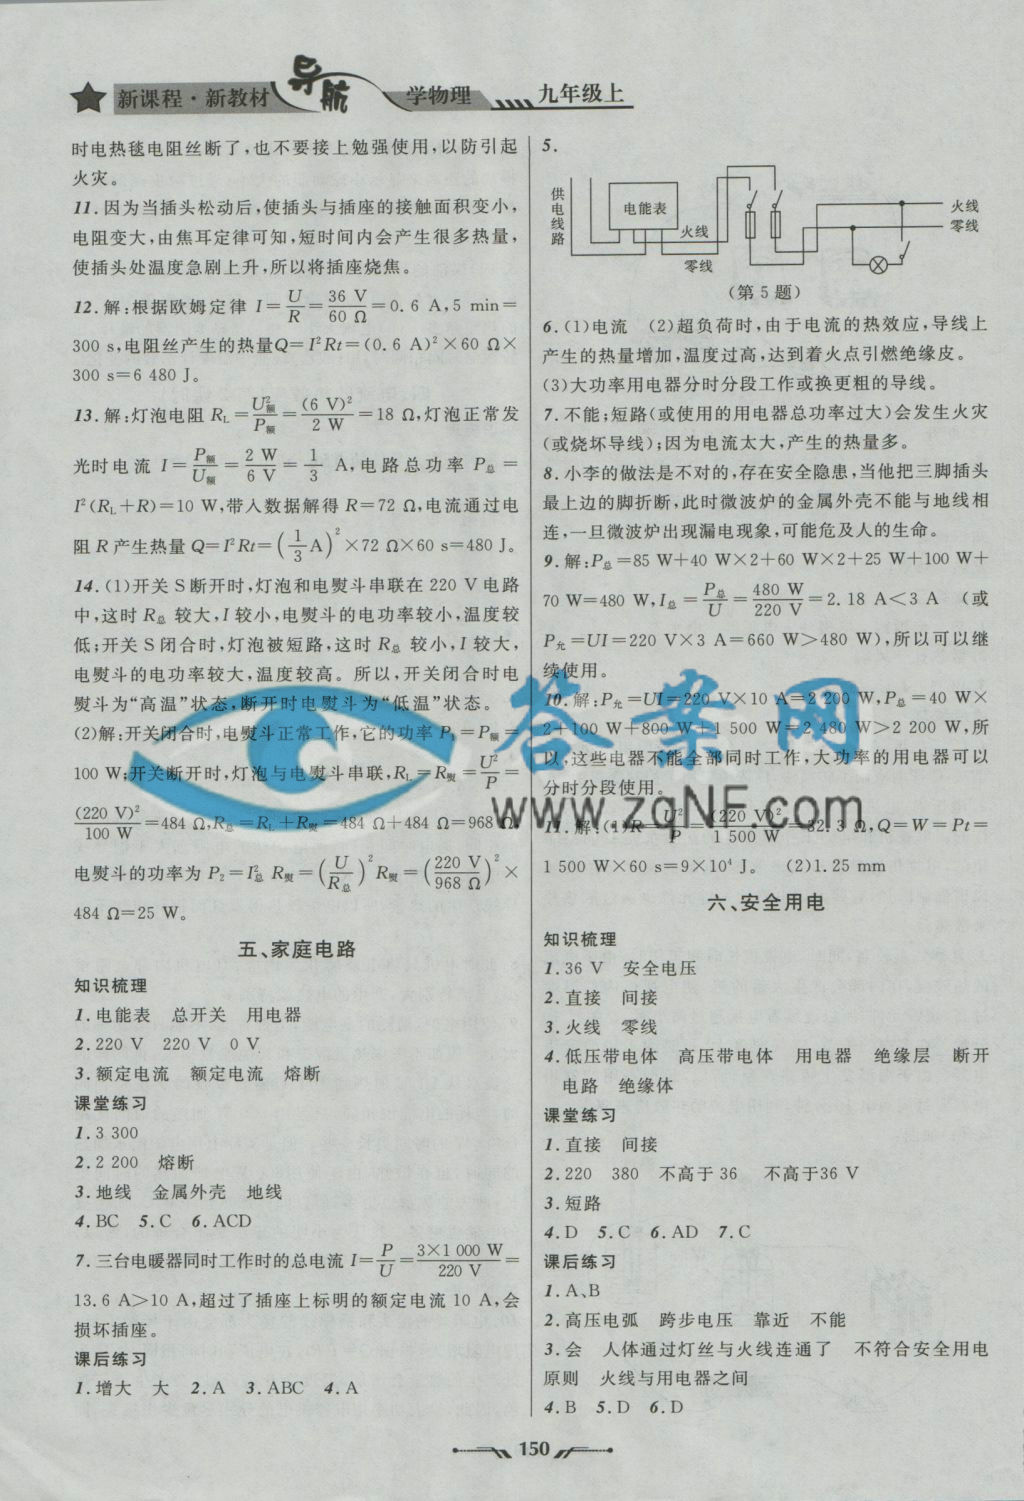 新课程·新教材 导航 学物理 九年级上
时电热毯电阻丝断了,也不要接上勉强使用,以防引起
火灾。
11.因为当插头松动后,使插头与插座的接触面积变小,
电阻变大,由焦耳定律可知,短时间内会产生很多热量,
使插头处温度急剧上升,所以将插座烧焦。
12.解:根据欧姆定律 I=U/R=36 V/60 Ω=0.6 A,5 min=
300 s,电阻丝产生的热量Q=I²Rt=(0.6 A)²×60 Ω×
300 s=6 480 J。
13.解:灯泡电阻 R_L=U额²/P额=(6 V)²/2 W=18 Ω,灯泡正常发
光时电流 I=P额/U额=2 W/6 V=1/3 A,电路总功率 P总=
I²(R_L+R)=10 W,带入数据解得 R=72 Ω,电流通过电
阻 R 产生热量 Q=I²Rt=(1/3 A)²×72 Ω×60 s=480 J。
14.(1)开关 S 断开时,灯泡和电熨斗串联在 220 V 电路
中,这时 R总 较大,I 较小,电熨斗的电功率较小,温度较
低;开关 S 闭合时,灯泡被短路,这时 R总 较小,I 较大,
电熨斗的电功率较大,温度较高。所以,开关闭合时电
熨斗为“高温”状态,断开时电熨斗为“低温”状态。
(2)解:开关闭合时,电熨斗正常工作,它的功率 P₁=P额=
100 W;开关断开时,灯泡与电熨斗串联,R_L=R熨=U²/P=
(220 V)²/100 W=484 Ω,R总=R_L+R熨=484 Ω+484 Ω=968 Ω,
电熨斗的功率为 P₂=I总² R熨=(U/R总)²R熨=(220 V/968 Ω)²×
484 Ω=25 W。
五、家庭电路
知识梳理
1.电能表 总开关 用电器
2.220 V 220 V 0 V
3.额定电流 额定电流 熔断
课堂练习
1.3 300
2.2 200 熔断
3.地线 金属外壳 地线
4.BC 5.C 6.ACD
7.三台电暖器同时工作时的总电流 I=P/U=3×1 000 W/220 V=
13.6 A>10 A,超过了插座上标明的额定电流 10 A,会
损坏插座。
课后练习
1.增大 大 2.A 3.ABC 4.A
5.
供电线路
电能表
火线
零线
火线
零线
(第 5 题)
6.(1)电流 (2)超负荷时,由于电流的热效应,导线上
产生的热量增加,温度过高,达到着火点引燃绝缘皮。
(3)大功率用电器分时分段工作或换更粗的导线。
7.不能;短路(或使用的用电器总功率过大)会发生火灾
(或烧坏导线);因为电流太大,产生的热量多。
8.小李的做法是不对的,存在安全隐患,当他把三脚插头
最上边的脚折断,此时微波炉的金属外壳不能与地线相
连,一旦微波炉出现漏电现象,可能危及人的生命。
9.解:P总=85 W+40 W×2+60 W×2+25 W+100 W+
70 W=480 W,I总=P总/U=480 W/220 V=2.18 A<3 A (或
P允=UI=220 V×3 A=660 W>480 W),所以可以继
续使用。
10.解:P允=UI=220 V×10 A=2 200 W,P总=40 W×
2+100 W+800 W+1 500 W=2 480 W>2 200 W,所
以,这些电器不能全部同时工作,大功率的用电器可以
分时分段使用。
11.解:(1)R=U²/P=(220 V)²/1 500 W=32.3 Ω,Q=W=Pt=
1 500 W×60 s=9×10⁴ J。 (2)1.25 mm
六、安全用电
知识梳理
1.36 V 安全电压
2.直接 间接
3.火线 零线
4.低压带电体 高压带电体 用电器 绝缘层 断开
电路 绝缘体
课堂练习
1.直接 间接
2.220 380 不高于 36 不高于36 V
3.短路
4.D 5.C 6.AD 7.C
课后练习
1.A、B
2.高压电弧 跨步电压 靠近 不能
3.会 人体通过灯丝与火线连通了 不符合安全用电
原则 火线与用电器之间
4.B 5.D 6.D
答案网
www.zqNF.com
150